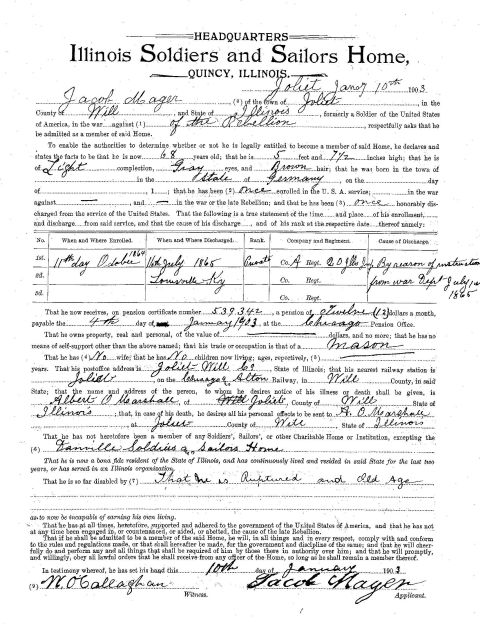 HEADQUARTERS
Illinois Soldiers and Sailors Home,
QUINCY, ILLINOIS.
Joliet Jany 10th 1903
Jacob Mager (2) of the town of Joliet, in the
County of Will and State of Illinois, formerly a Soldier of the United States
of America, in the war against (1) of the Rebellion, respectfully asks that he
be admitted as a member of said Home.
To enable the authorities to determine whether or not he is legally entitled to become a member of said Home, he declares and
states the facts to be that he is now 68 years old; that he is 5 feet and 7 1/2 inches high; that he is
of Light complection, Gray eyes, and Brown hair; that he was born in the town of
in the State of Germany, on the day
of 1 ; that he has been (2) once enrolled in the U. S. A. service; in the war
against — and — in the war or the late Rebellion; and that he has been (3) once honorably dis-
charged from the service of the United States. That the following is a true statement of the time and place of his enrollment,
and discharge from said service, and that the cause of his discharge, and of his rank at the respective date thereof namely:
No. When and Where Enrolled. When and Where Discharged. Rank. Company and Regiment. Cause of Discharge.
1st. 11th day October 1864 16th July 1865 Private Co. A Regt. 20 Ills By reason of instruction
2d. Louisville Ky Co. Regt. from war Dept July
3d. Co. Regt. 1865
That he now receives, on pension certificate number 539,342, a pension of Twelve (12) dollars a month,
payable the 4th day of January 1903 at the Chicago Pension Office.
That he owns property, real and personal, of the value of dollars, and no more; that he has no
means of self-support other than the above named; that his trade or occupation is that of a Mason
That he has (4) No wife; that he has No children now living; ages, repectively, (5)
years. That his postoffice address is Joliet Will Co State of Illinois; that his nearest railway station is
Joliet, on the Chicago & Alton Railway, in Will County, in said
State; that the name and address of the person, to whom he desires notice of his illness or death shall be given, is
Albert O Marshall, of Joliet, County of Will State of
Illinois; that, in case of his death, he desires all his personal effects to be sent to A. O. Marshall
at Joliet County of Will, State of Illinois
That he has not heretofore been a member of any Soldiers', Sailors', or other Charitable Home or Institution, excepting the
(4) Danville Soldiers & Sailors Home
That he is now a bona fide resident of the State of Illinois, and has continuously lived and resided in said State for the last two
years, or has served in an Illinois organization.
That he is so far disabled by (7) That he is Ruptured and Old Age
as to now be incapable of earning his own living.
That he has at all times, heretofore, supported and adhered to the government of the United States of America, and that he has not
at any time engaged in, or countenanced, or aided, or abetted, the cause of the late Rebellion.
That if he shall be admitted to be a member of the said Home, he will, in all things and in every respect, comply with and conform
to the rules and regulations made, or that shall hereafter be made, for the government and discipline of the same; and that he will cheer-
fully do and perform any and all things that shall be required of him by those there in authority over him; and that he will promptly,
and willingly, obey all lawful orders that he shall receive from any officer of the Home, so long as he shall remain a member thereof.
In testimony whereof, he has set his hand this 10th day of January 1903
(9) M. O'Callaghan Jacob Mager
Witness. Applicant.